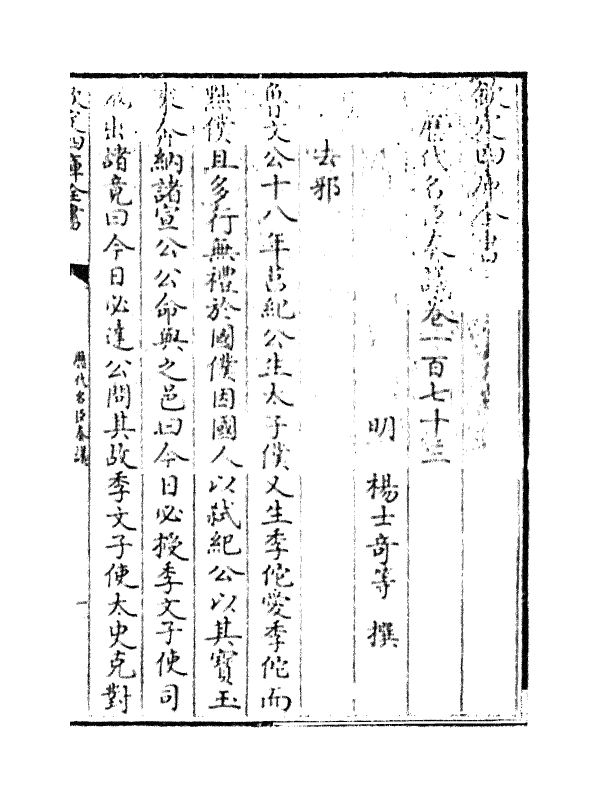 欽定四庫全書
歷代名臣奏議卷一百七十三
明 楊士奇等 撰
去邪
魯文公十八年莒紀公生太子僕又生季佗愛季佗而
黜僕且多行無禮於國僕因國人以弑紀公以其寶玉
來奔納諸宣公公命與之邑曰今日必授季文子使司
寇出諸竟曰今日必達公問其故季文子使太史克對
欽定四庫全書
歷代名臣奏議
一